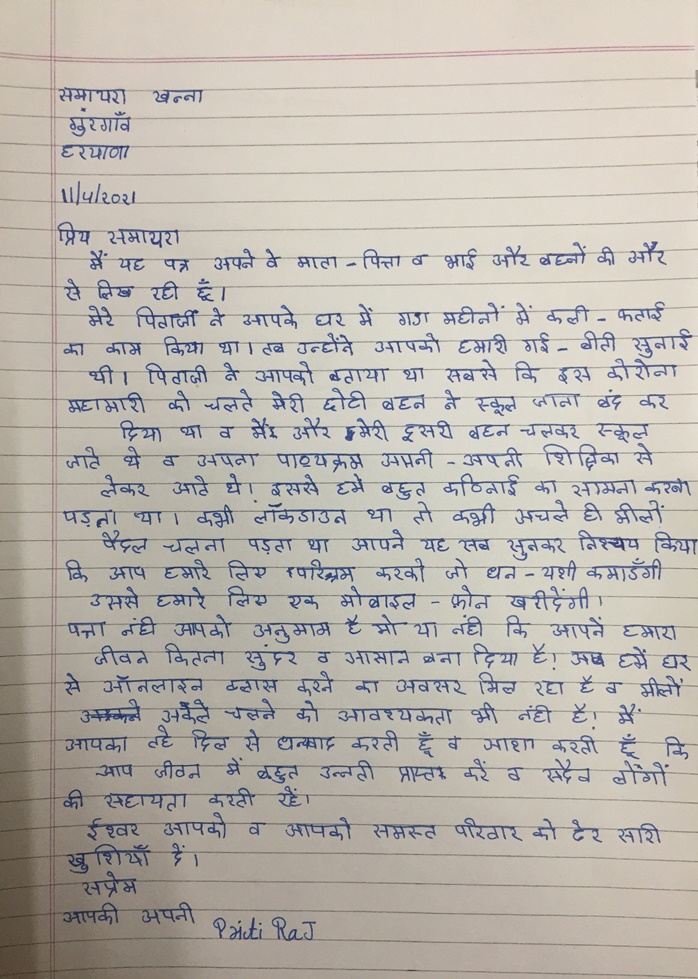 समायरा खन्ना
गुरगाँव
हरयाणा
11/4/2021
प्रिय समायरा
मैं यह पत्र अपने वे माता - पित्ता व भाई और बहनों की और
से लिख रही हूँ।
मेरे पिताजी ने आपके घर में गत महीनों में कली - फताई
का काम किया था। तब उन्होंने आपको हमारी गई - बीती सुनाई
थी। पिताजी ने आपको बताया था सबसे कि इस कोरोना
महामारी को चलते मेरी छोटी बहन ने स्कूल जाना बंद कर
दिया था व मैं और मेरी दूसरी बहन चलकर स्कूल
जाते थे व अपना पाठ्यक्रम अपनी - अपनी शिक्षिका से
लेकर आते थे। इससे हमे बहुत कठिनाई का सामना करना
पड़ता था। कभी लॉकडाउन था तो कभी अचले ही मीलों
पैदल चलना पड़ता था आपने यह सब सुनकर निश्चय किया
कि आप हमारे लिए परिश्रम करको जो धन - यशी कमाडँगी
उससे हमारे लिए एक मोबाइल - फ़ोन खरीदेंगी।
पत्ता नंही आपको अनुमाम है मो या नंही कि आपनें हमारा
जीवन कितना सुंदर व आसान बना दिया है! अब हमें घर
से ऑनलाइन क्लास करने का अवसर मिल रहा है व मीलों
अकेले चलने को आवश्यकता भी नंही है! मैं
आपका तहे दिल से धन्याद करती हूँ व आशा करती हूँ कि
आप जीवन में बहुत उन्नती प्राप्त करें व सदैव लोंगों
की सहायता करती रहें।
ईश्वर आपको व आपको समस्त परिवार को ढेर सारि
खुशियाँ दें।
सप्रेम
आपकी अपनी Priti Raj